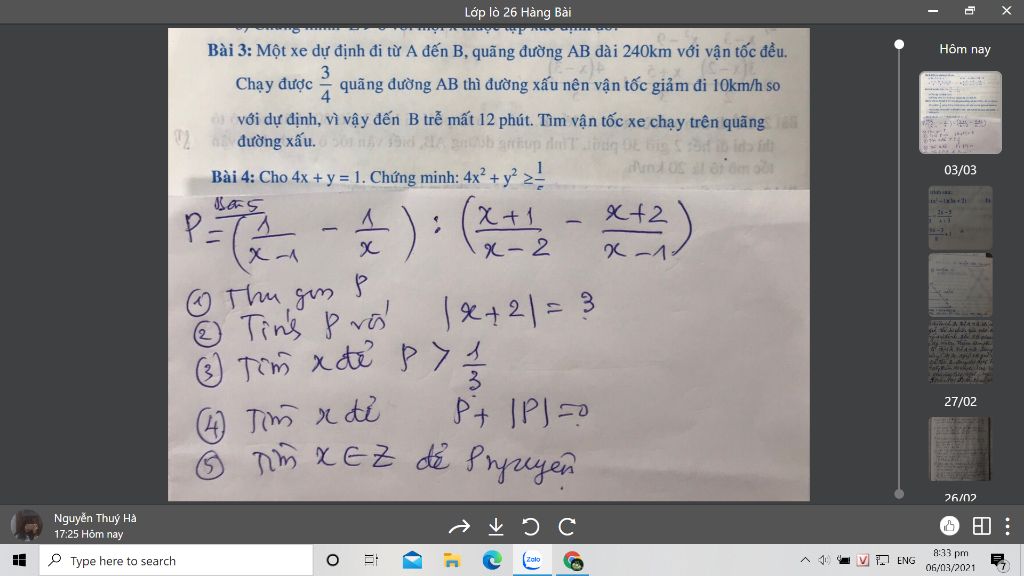 Lớp lò 26 Hàng Bài
Bài 3: Một xe dự định đi từ A đến B, quãng đường AB dài 240km với vận tốc đều.
Chạy được 3/4 quãng đường AB thì đường xấu nên vận tốc giảm đi 10km/h so
với dự định, vì vậy đến B trễ mất 12 phút. Tìm vận tốc xe chạy trên quãng
đường xấu.
Bài 4: Cho 4x + y = 1. Chứng minh: 4x² + y² ≥ 1/
Bài 5
P = (1/(x-1) - 1/x) : ((x+1)/(x-2) - (x+2)/(x-1))
① Thu gọn P
② Tính P với |x+2| = 3
③ Tìm x để P > 1/3
④ Tìm x để P + |P| = 0
⑤ Tìm x ∈ Z để P nguyên
Hôm nay
03/03
27/02
26/02
Nguyễn Thuý Hà
17:25 Hôm nay
Type here to search
Zalo
ENG
8:33 pm
06/03/2021
7